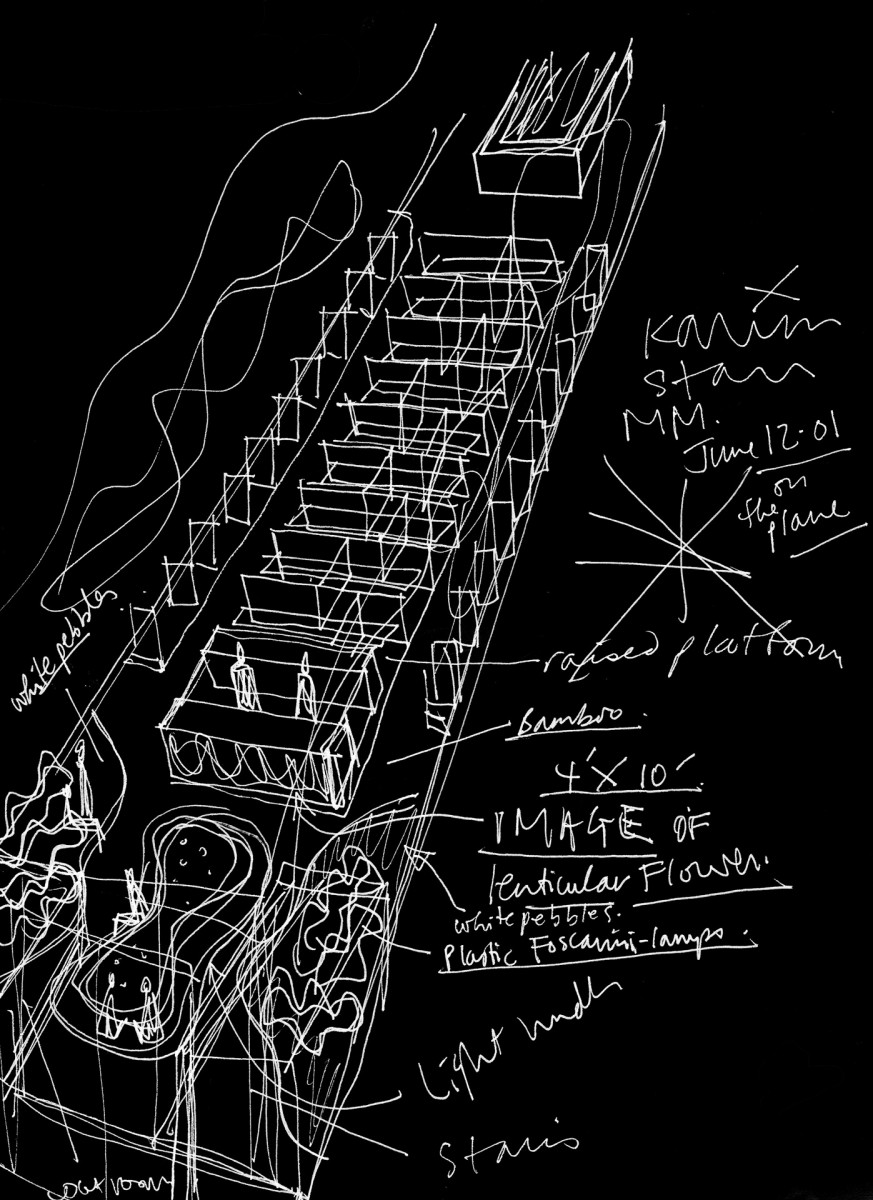 Karim
Stairs
MM.
June 12-01
on
the
plane
white pebbles.
raised platform
Bamboo.
4' X 10'
IMAGE OF
lenticular Flower.
white pebbles.
Plastic Foscarini-lamps.
Light under
Stairs
coat room